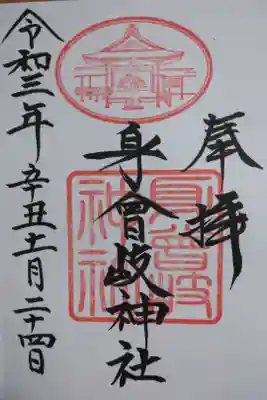 奉拝
身曾岐神社
身曾岐
神社
令和三年 辛丑十一月二十四日